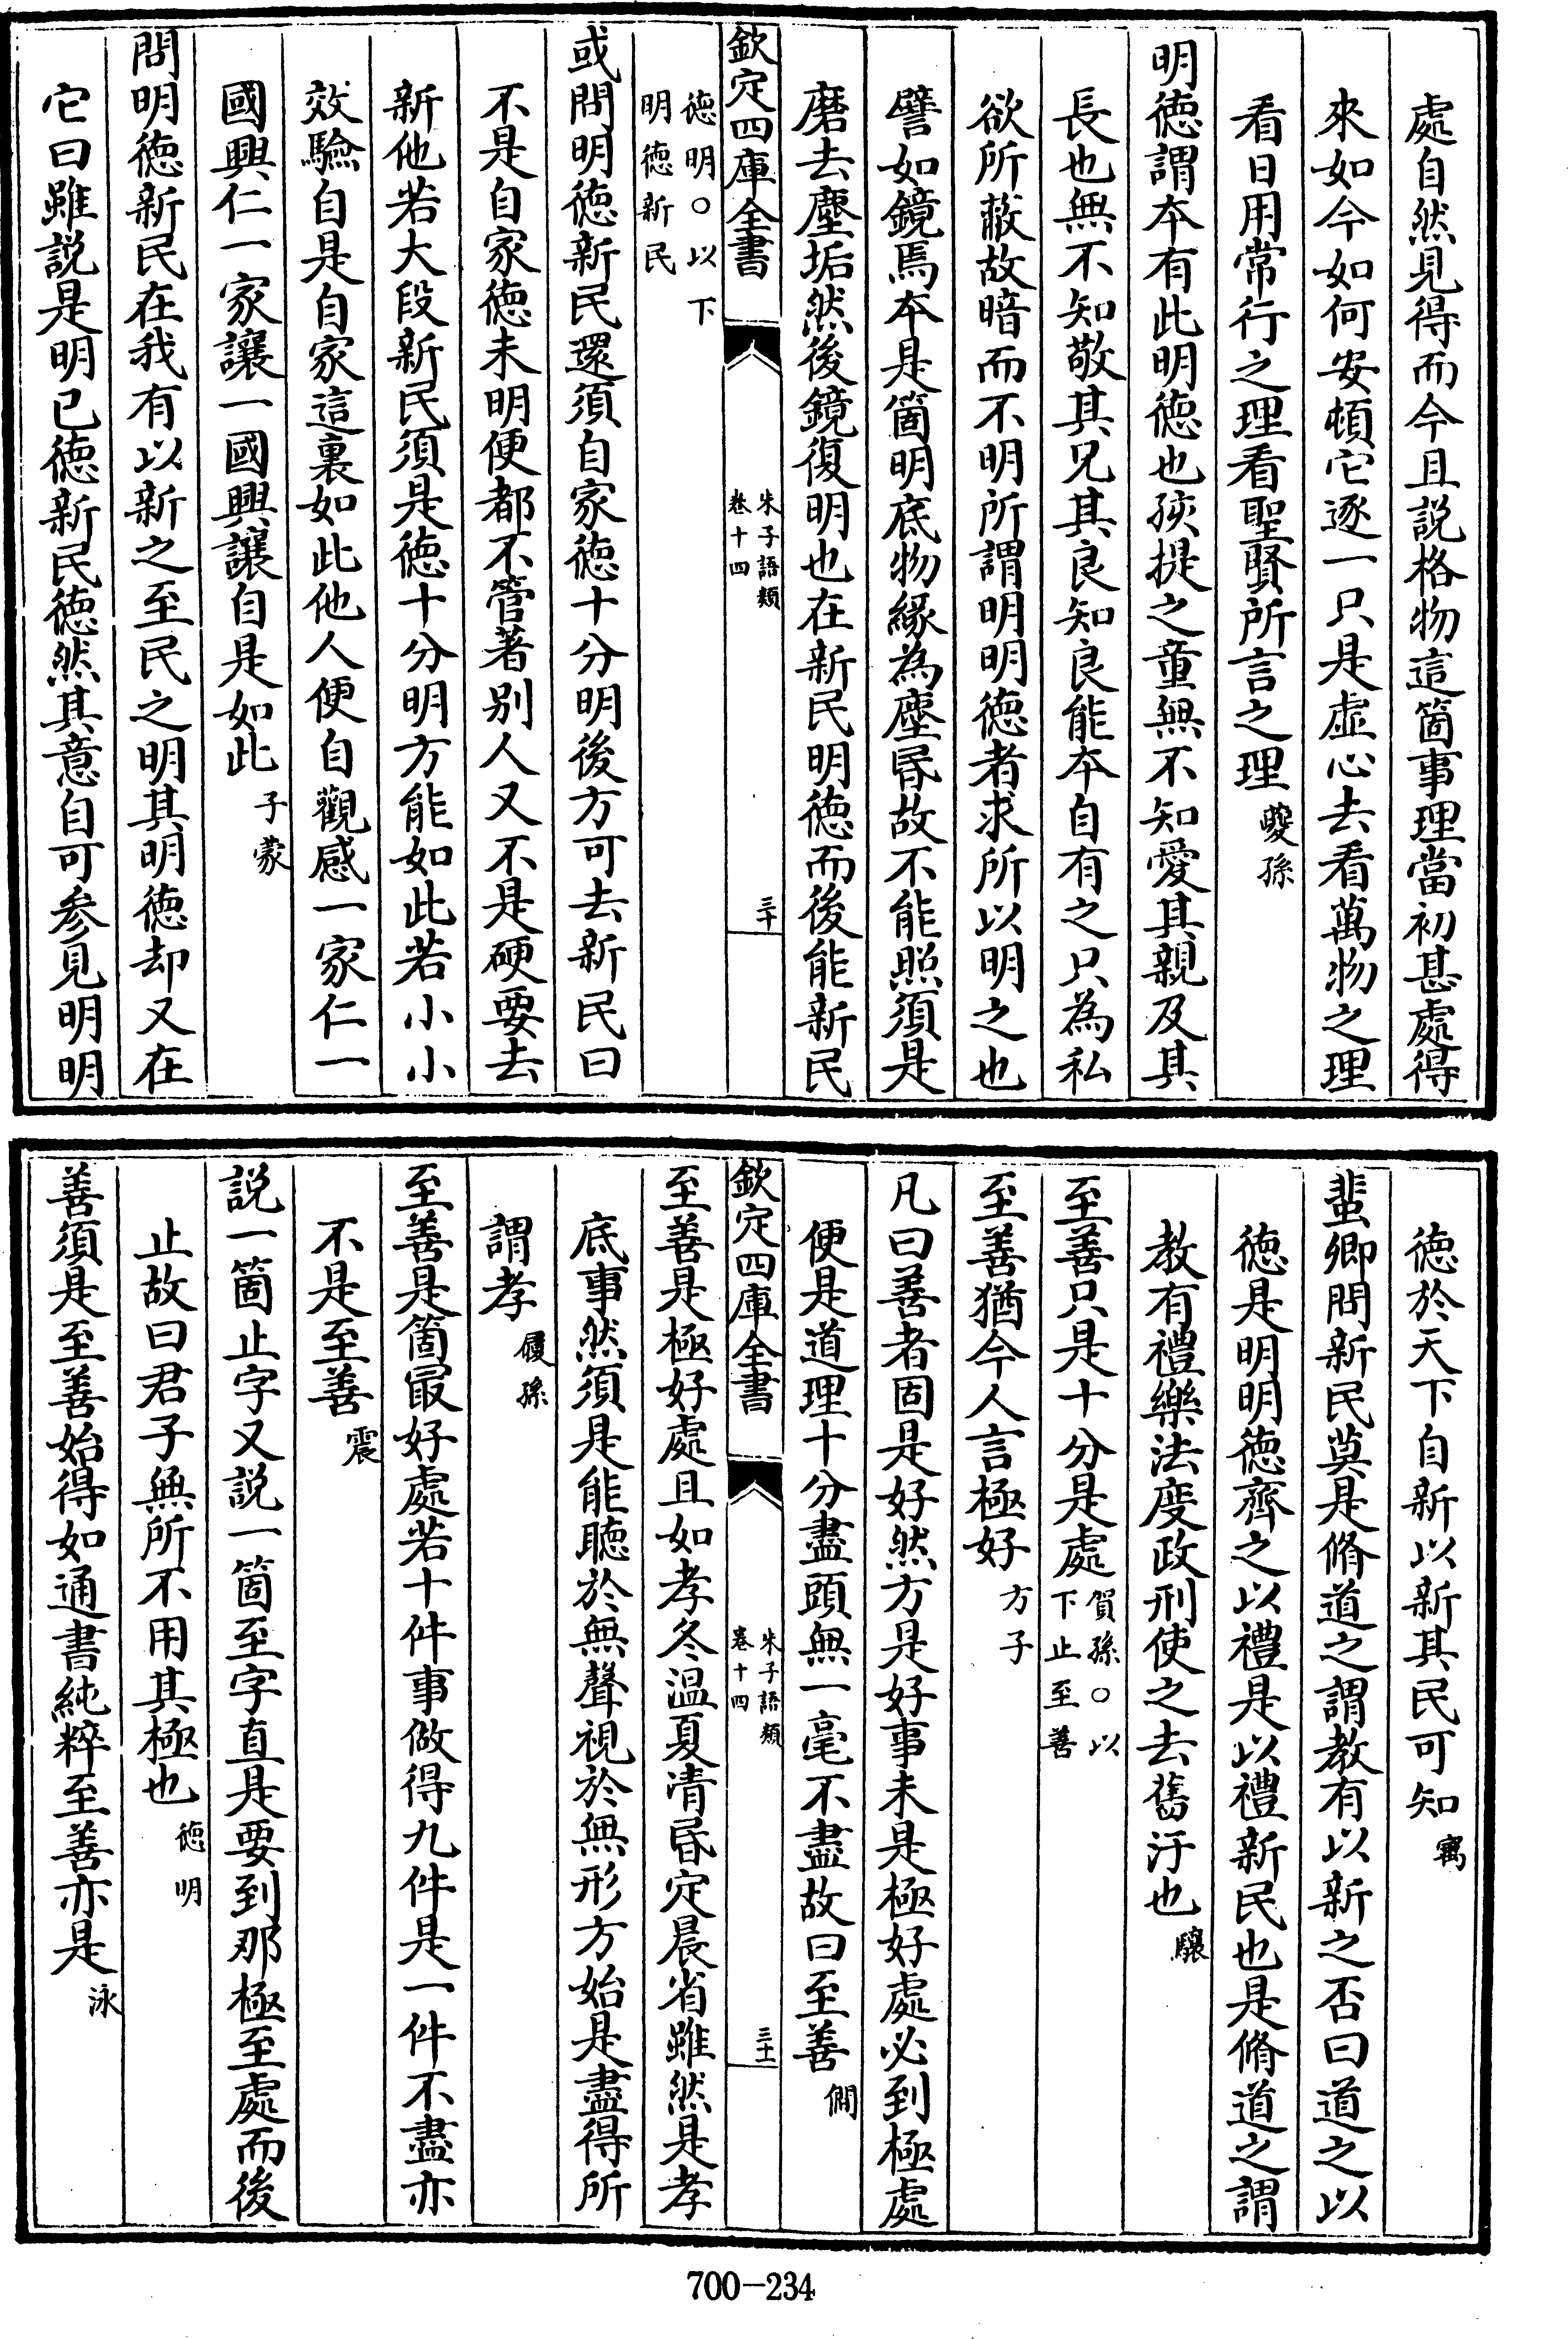 處自然見得而今且説格物這箇事理當初甚處得
來如今如何安頓它逐一只是虚心去看萬物之理
看日用常行之理看聖賢所言之理夔孫
明德謂本有此明德也孩提之童無不知愛其親及其
長也無不知敬其兄其良知良能本自有之只為私
欲所蔽故暗而不明所謂明明德者求所以明之也
譬如鏡焉本是箇明底物緣為塵昏故不能照須是
磨去塵垢然後鏡復明也在新民明德而後能新民
欽定四庫全書
朱子語類
卷十四
三十
德明○以下
明德新民
或問明德新民還須自家德十分明後方可去新民曰
不是自家德未明便都不管著别人又不是硬要去
新他若大段新民須是德十分明方能如此若小小
效驗自是自家這裏如此他人便自觀感一家仁一
國興仁一家讓一國興讓自是如此子蒙
問明德新民在我有以新之至民之明其明德却又在
它曰雖説是明已德新民德然其意自可參見明明
德於天下自新以新其民可知㝢
蜚卿問新民莫是脩道之謂教有以新之否曰道之以
德是明明德齊之以禮是以禮新民也是脩道之謂
教有禮樂法度政刑使之去舊汙也驤
至善只是十分是處賀孫○以
下止至善
至善猶今人言極好方子
凡曰善者固是好然方是好事未是極好處必到極處
便是道理十分盡頭無一毫不盡故曰至善僩
欽定四庫全書
朱子語類
卷十四
三十一
至善是極好處且如孝冬温夏凊昏定晨省雖然是孝
底事然須是能聽於無聲視於無形方始是盡得所
謂孝履孫
至善是箇最好處若十件事做得九件是一件不盡亦
不是至善震
説一箇止字又説一箇至字直是要到那極至處而後
止故曰君子無所不用其極也德明
善須是至善始得如通書純粹至善亦是泳
700-234